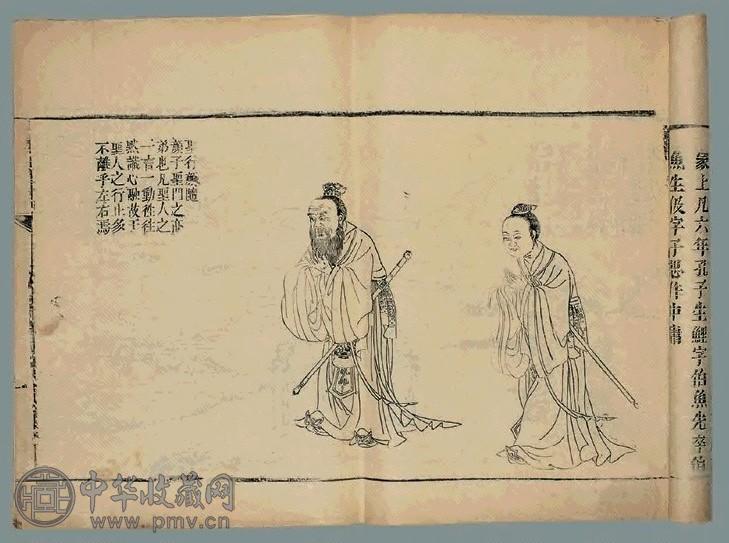 象上凡六年孔子生鯉字伯魚先卒伯
魚生伋字子思作中庸
聖行顏隨
顏子聖門之亦
弟也凡聖人之
一言一動往往
默識心融故于
聖人之行止多
不離乎左右焉
中华收藏网
www.pmv.cn